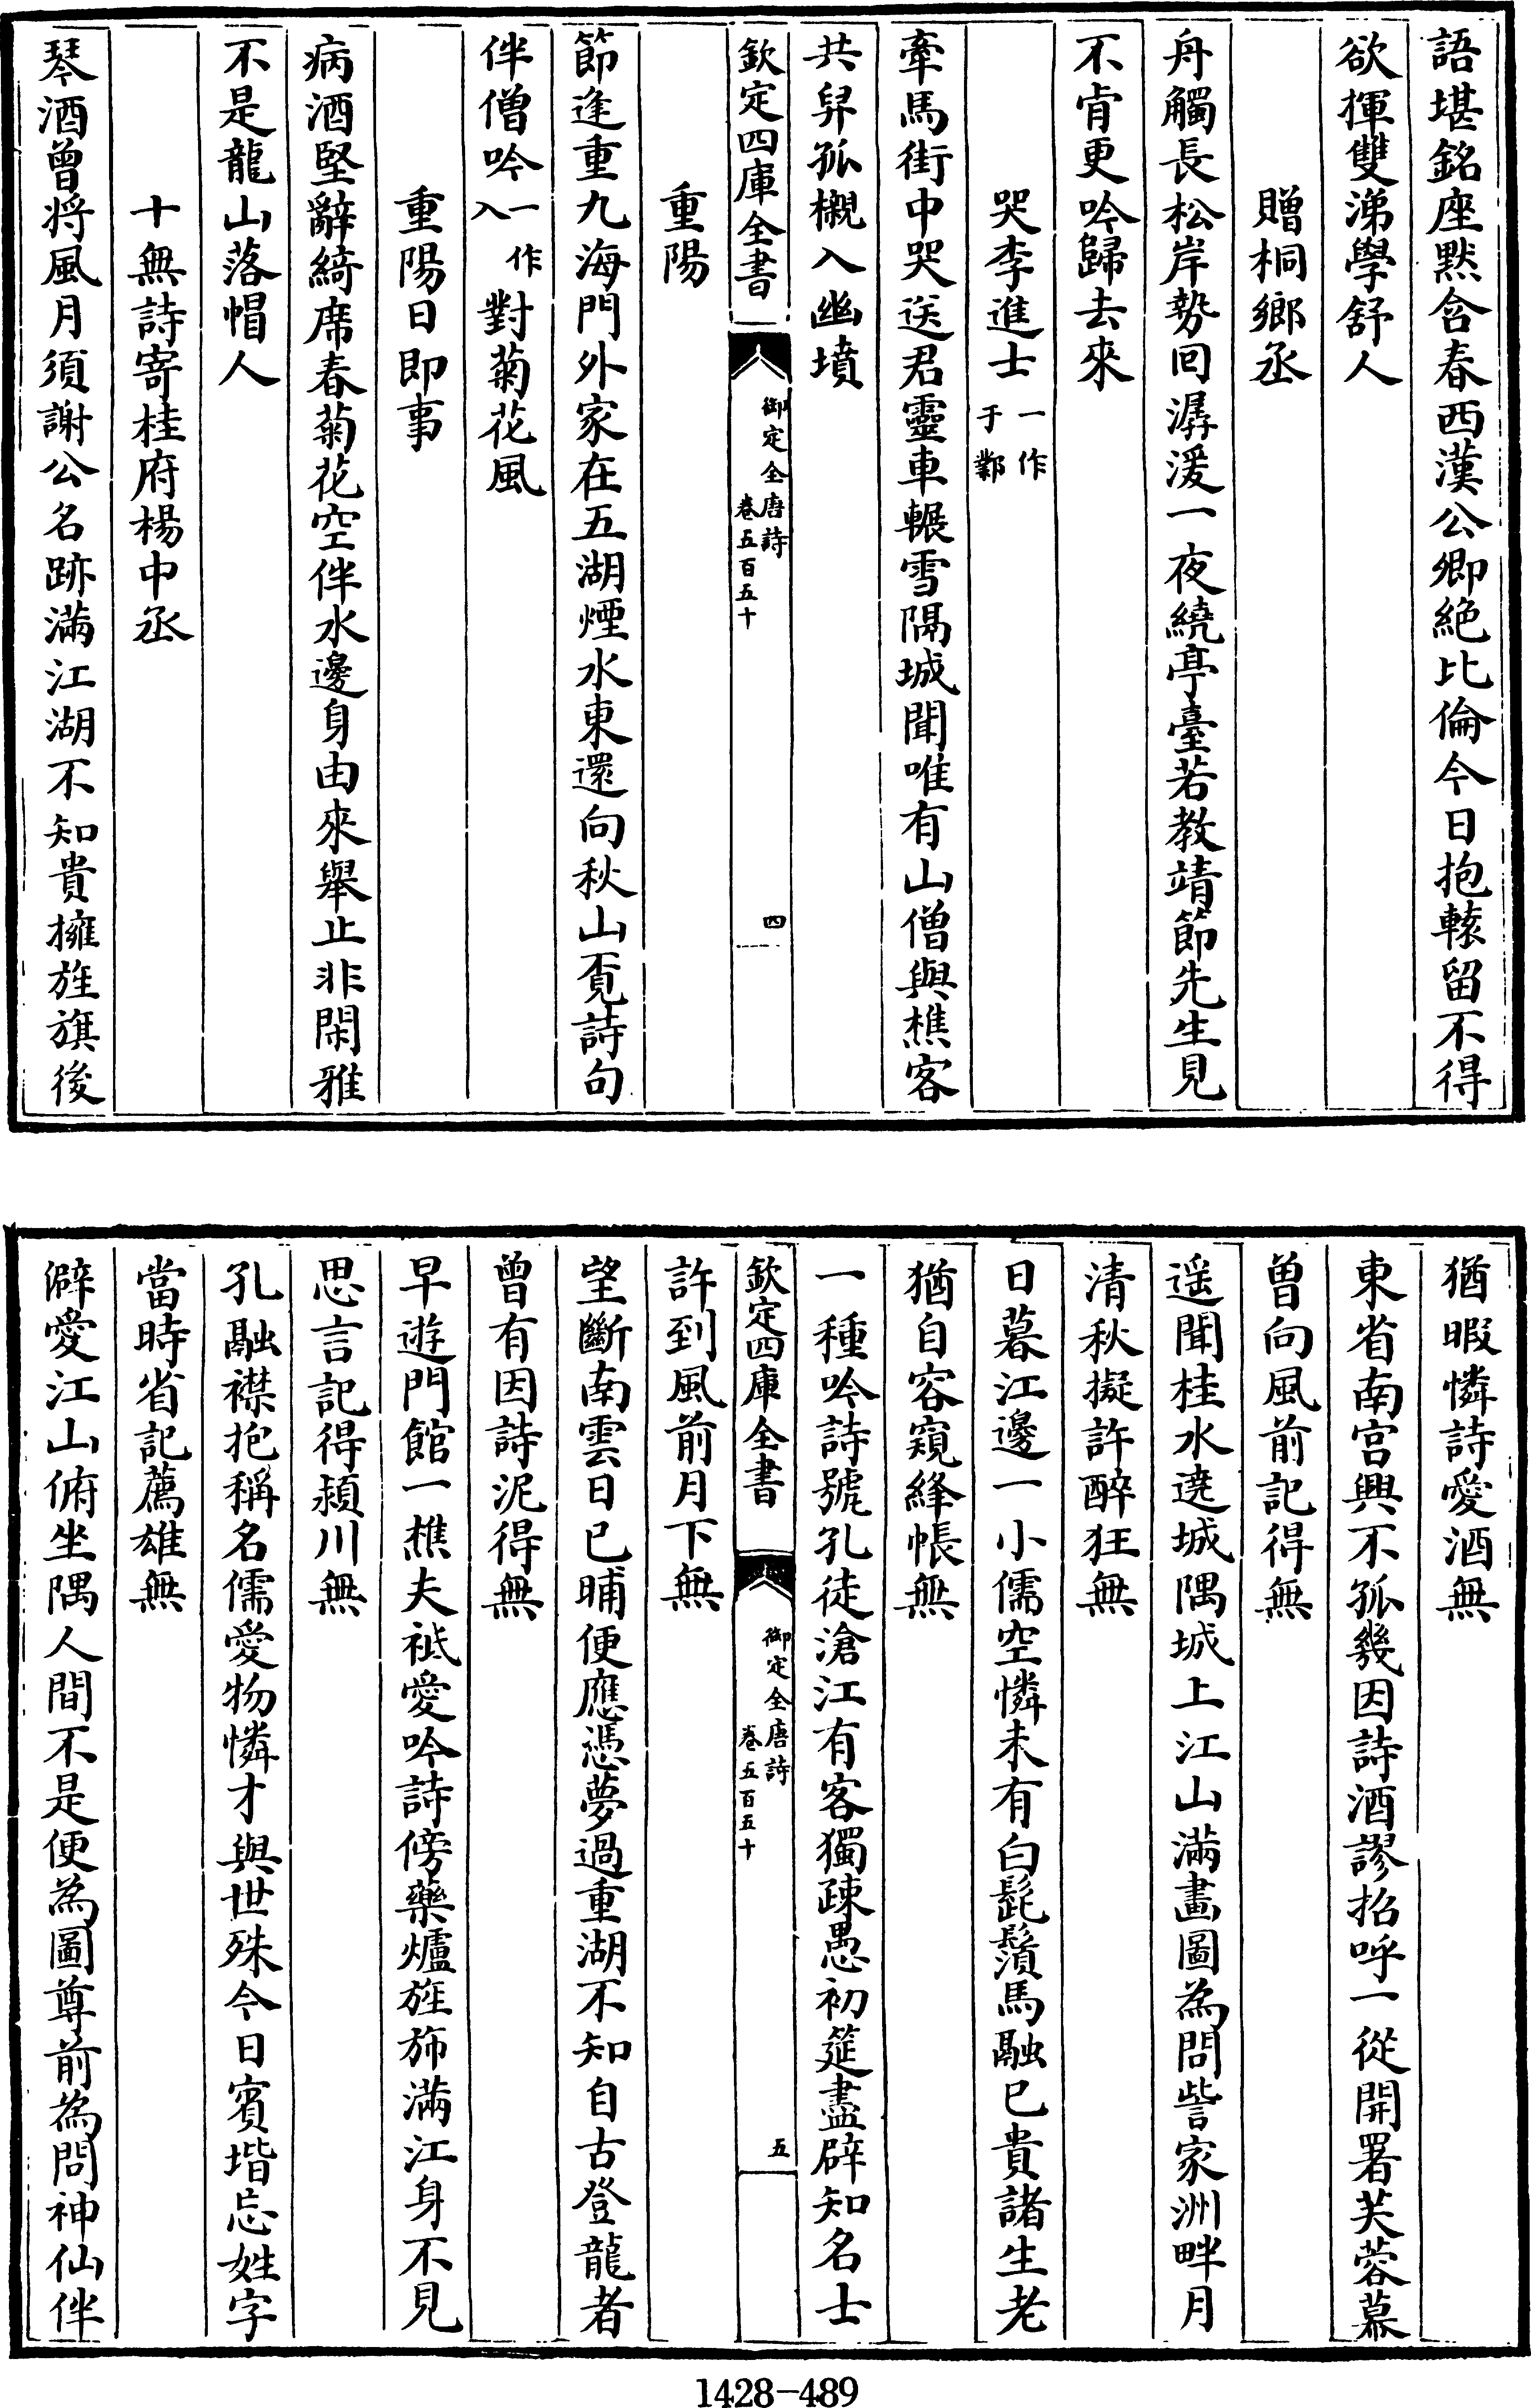 語堪銘座默含春西漢公卿絶比倫今日抱轅留不得
欲揮雙涕學舒人
贈桐鄉丞
舟觸長松岸勢回潺湲一夜繞亭臺若教靖節先生見
不肯更吟歸去來
哭李進士一作于鄴
牽馬街中哭送君靈車輾雪隔城聞唯有山僧與樵客
共舁孤櫬入幽墳
欽定四庫全書 御定全唐詩 卷五百五十 四
重陽
節逢重九海門外家在五湖煙水東還向秋山覔詩句
伴僧吟一作入對菊花風
重陽日即事
病酒堅辭綺席春菊花空伴水邊身由來舉止非閑雅
不是龍山落帽人
十無詩寄桂府楊中丞
琴酒曾將風月須謝公名跡滿江湖不知貴擁旌旗後
猶暇憐詩愛酒無
東省南宮興不孤幾因詩酒謬招呼一從開署芙蓉幕
曽向風前記得無
遥聞桂水遶城隅城上江山滿畫圖為問訾家洲畔月
清秋擬許醉狂無
日暮江邊一小儒空憐未有白髭鬚馬融已貴諸生老
猶自容窺絳帳無
一種吟詩號孔徒滄江有客獨疎愚初筵盡辟知名士
欽定四庫全書 御定全唐詩 卷五百五十 五
許到風前月下無
望斷南雲日已晡便應憑夢過重湖不知自古登龍者
曾有因詩泥得無
早遊門館一樵夫祗愛吟詩傍藥爐旌斾滿江身不見
思言記得潁川無
孔融襟抱稱名儒愛物憐才與世殊今日賓堦忘姓字
當時省記薦雄無
澼愛江山俯坐隅人間不是便為圖尊前為問神仙伴
1428-489